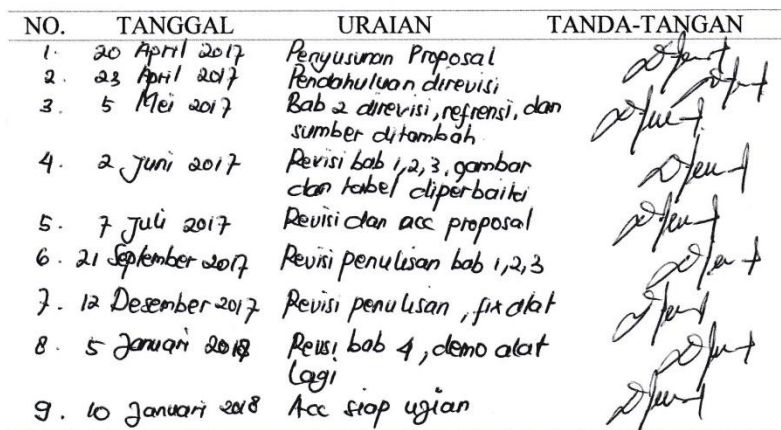 NO. TANGGAL URAIAN TANDA-TANGAN
1. 20 April 2017 Penyusunan Proposal
2. 23 April 2017 Pendahuluan direvisi
3. 5 Mei 2017 Bab 2 direvisi, refrensi, dan
sumber ditambah
4. 2 Juni 2017 Revisi bab 1,2,3, gambar
dan tabel diperbaiki
5. 7 Juli 2017 Revisi dan acc proposal
6. 21 September 2017 Revisi penulisan bab 1,2,3
7. 12 Desember 2017 Revisi penulisan, fix alat
8. 5 Januari 2018 Revisi bab 4, demo alat
lagi
9. 10 Januari 2018 Acc siap ujian